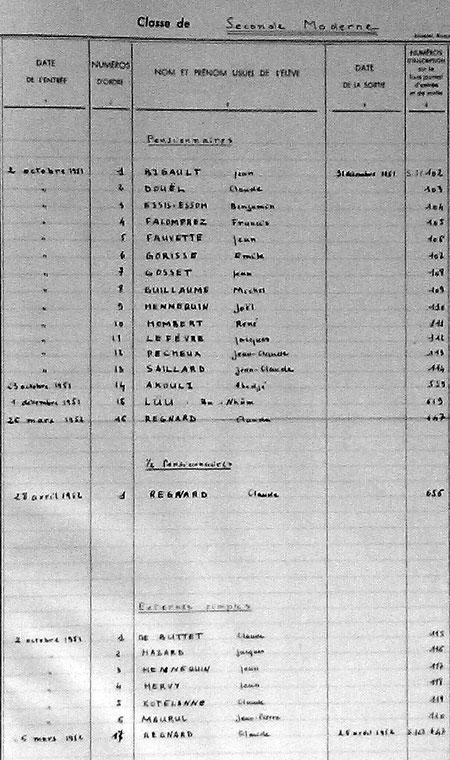 Classe de Seconde Moderne
DATE DE L'ENTRÉE NUMÉROS D'ORDRE NOM ET PRÉNOM USUEL DE L'ÉLÈVE DATE DE LA SORTIE NUMÉROS D'INSCRIPTION sur le livre journal d'entrée et de sortie
Pensionnaires
2 octobre 1951 1 BIGAULT Jean 31 décembre 1951 102
" 2 DOUËL Claude 103
" 3 ESSIS-ESSOH Benjamin 104
" 4 FALOMPREZ Francis 105
" 5 FAUVETTE Jean 106
" 6 GORISSE Emile 107
" 7 GOSSET Jean 108
" 8 GUILLAUME Michel 109
" 9 HENNEQUIN Joël 110
" 10 HOMBERT René 111
" 11 LEFÈVRE Jacques 112
" 12 PECHEUX Jean-Claude 113
" 13 SAILLARD Jean-Claude 114
23 octobre 1951 14 AKOULI
1 décembre 1951 15 LUU 619
26 mars 1952 16 REGNARD Claude 647
½ Pensionnaires
28 avril 1952 1 REGNARD Claude 656
Externes simples
2 octobre 1951 1 DE BUTTET Claude 115
" 2 HAZARD Jacques 116
" 3 HENNEQUIN Jean 117
" 4 HERVY Jean 118
" 5 Claude 119
" 6 Jean-Pierre 120
5 mars 1952 17 REGNARD Claude 25 avril 1952